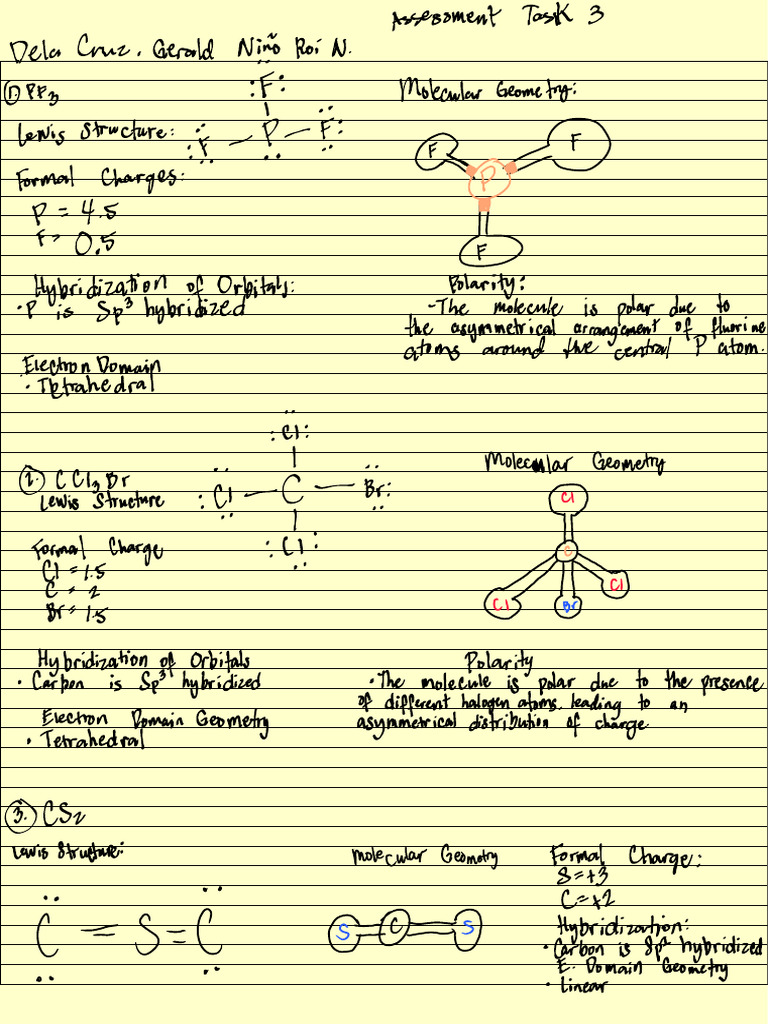 Assessment Task 3
Dela Cruz, Gerald Niño Roi N.
1. PF3
Molecular Geometry:
Lewis Structure:
F
F — P — F
F F
P
F
Formal Charges:
P = 4.5
F = 0.5
Hybridization of Orbitals:
• P is Sp3 hybridized
Polarity:
- The molecule is polar due to
the asymmetrical arrangement of fluorine
atoms around the central P atom.
Electron Domain
• Tetrahedral
2. CCl3Br
Lewis Structure
Cl
Cl — C — Br
Cl
Molecular Geometry
Cl
C
Cl Br Cl
Formal Charge
Cl = 1.5
C = 2
Br = 1.5
Hybridization of Orbitals
• Carbon is Sp3 hybridized
Electron Domain Geometry
• Tetrahedral
Polarity
• The molecule is polar due to the presence
of different halogen atoms, leading to an
asymmetrical distribution of charge
3. CS2
Lewis Structure:
C = S = C
Molecular Geometry
S C S
Formal Charge:
S = +3
C = +2
Hybridization:
• Carbon is Sp2 hybridized
E. Domain Geometry
• Linear